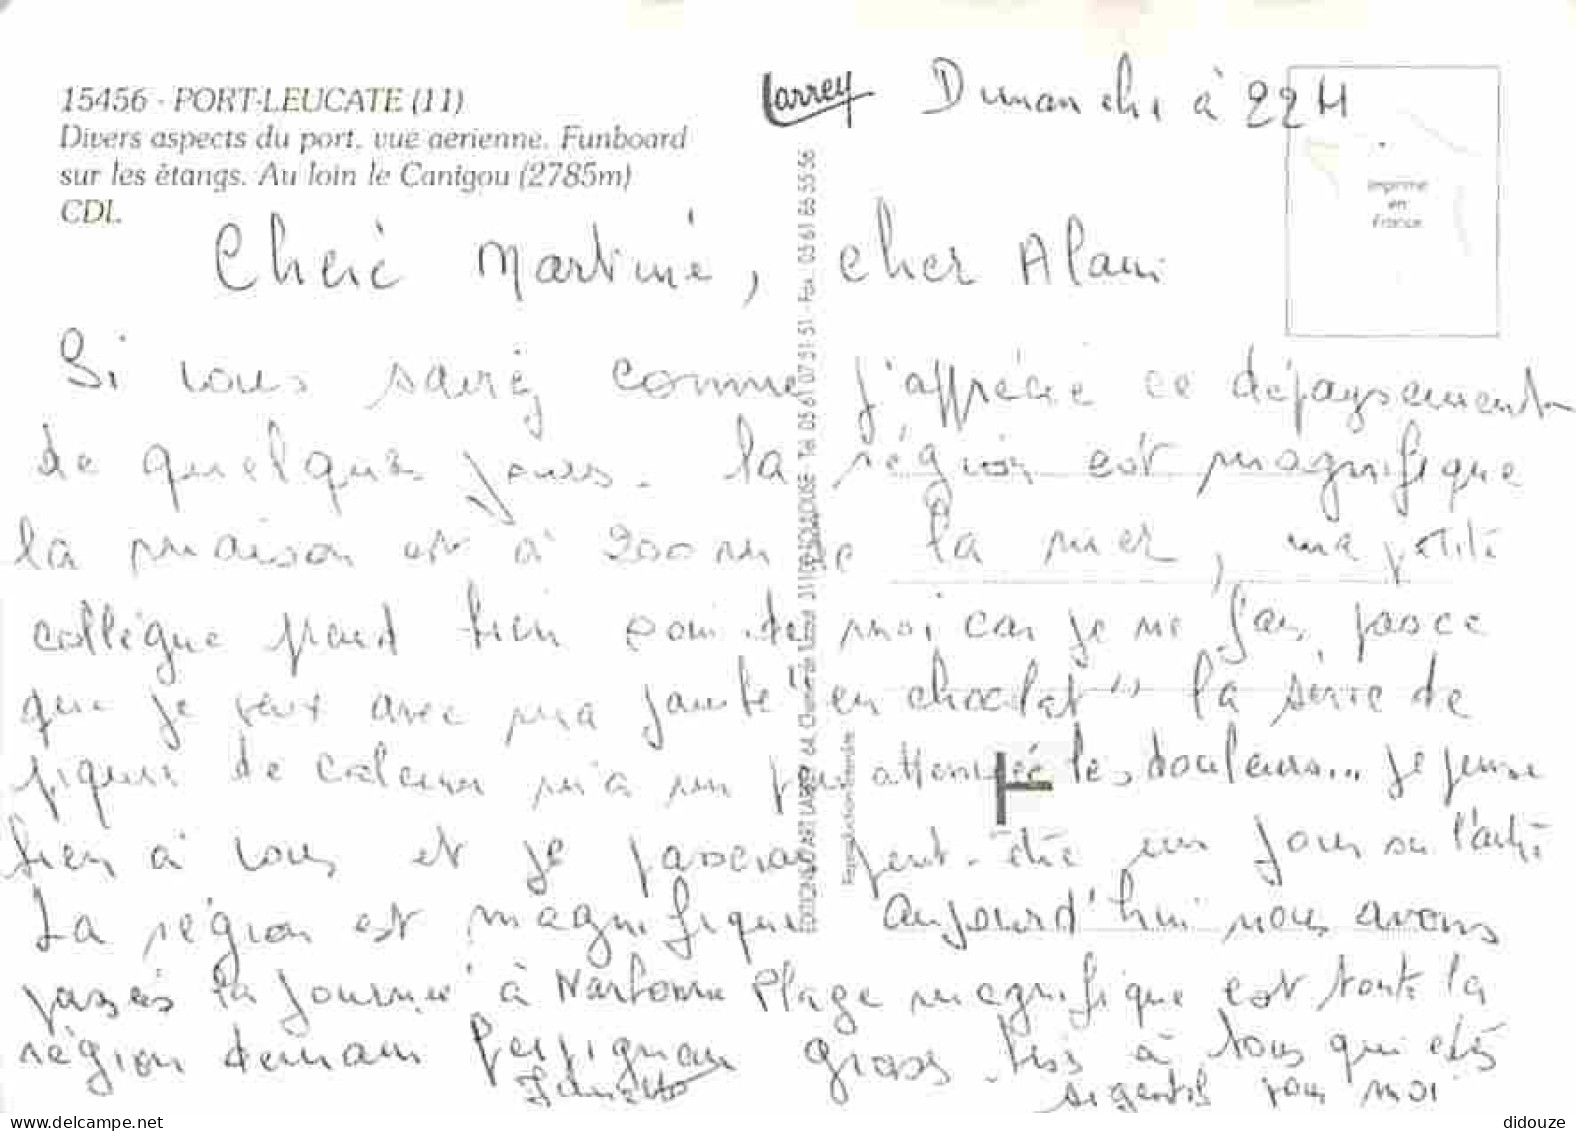 15456 - PORT-LEUCATE (11)
Divers aspects du port, vue aerienne. Funboard
sur les étangs. Au loin le Canigou (2785m)
CDL.
Larrey
Dimanche à 22H
Imprimé
en
France
Chère Martine, cher Alain
Si vous saviez comme j'apprécie ce dépaysement
de quelques jours. la région est magnifique
la maison est à 200 m de la mer, ma petite
collègue prend bien soin de moi car je ne fais parce
que je peux avec ma jambe "en chocolat" la série de
piqures de calcium m'a un peu attenuée les douleurs... je pense
bien à vous et je passerai peut-être un jour su l'autre
La région est magnifique aujourd'hui nous avons
passés la journée à Narbonne Plage magnifique est toute la
région demain Perpignan gross bis à tous qui etes
si gentils pour moi
EDITIONS D'ART LARREY 64, Chemin de 31100 TOULOUSE - Tél. 05 61 07 51 51 - Fax : 05 61 86 55 56
Reproduction Interdite
delcampe.net
didouze